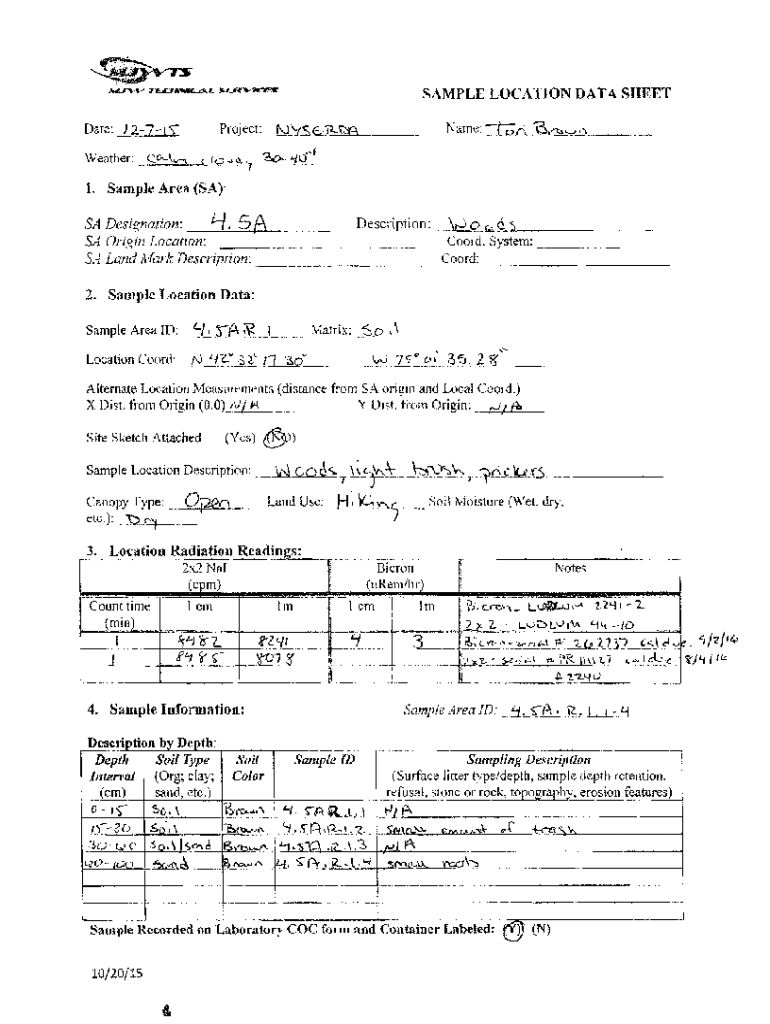 MJW TECHNICAL SERVICES
SAMPLE LOCATION DATA SHEET
Date: 12-7-15 Project: NYSERDA Name: Tori Brown
Weather: Calm, cloudy 30-40°F
1. Sample Area (SA):
SA Designation: 4.5A Description: Woods
SA Origin Location: Coord. System:
SA Land Mark Description: Coord:
2. Sample Location Data:
Sample Area ID: 4.5A.R.1 Matrix: Soil
Location Coord: N 42° 32' 17.30" W 75° 01' 35.28"
Alternate Location Measurements (distance from SA origin and Local Coord.)
X Dist. from Origin (0.0) N/A Y Dist. from Origin: N/A
Site Sketch Attached (Yes) (No)
Sample Location Description: Woods, light brush, prickers
Canopy Type: Open Land Use: Hiking Soil Moisture (Wet, dry,
etc.): Dry
3. Location Radiation Readings:
2x2 NaI Bicron Notes
(cpm) (uRem/hr)
Count time 1 cm 1m 1 cm 1m Bicron - LUDLUM 2241-2
(min) 2x2 - LUDLUM 44-10
1 8482 8241 4 3 Bicron-serial # 262737 cal due 9/2/16
1 8485 8078 2x2 - serial # PR cal due 8/4/16
4. Sample Information: Sample Area ID: 4.5A.R.1.1-4
Description by Depth:
Depth Soil Type Soil Sample ID Sampling Description
Interval (Org; clay; Color (Surface litter type/depth, sample depth retention,
(cm) sand, etc.) refusal, stone or rock, topography, erosion features)
0-15 Soil Brown 4.5A.R.1.1 N/A
15-30 Soil Brown 4.5A.R.1.2 small amount of trash
30-60 Soil/sand Brown 4.5A.R.1.3 N/A
60-100 Sand Brown 4.5A.R.1.4 small roots
Sample Recorded on Laboratory COC form and Container Labeled: (Y) (N)
10/20/15